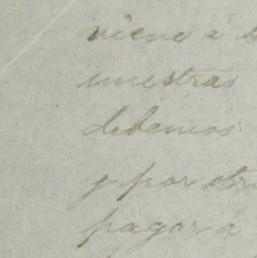 viene á
nuestras
debemos
y por otr
pagar á